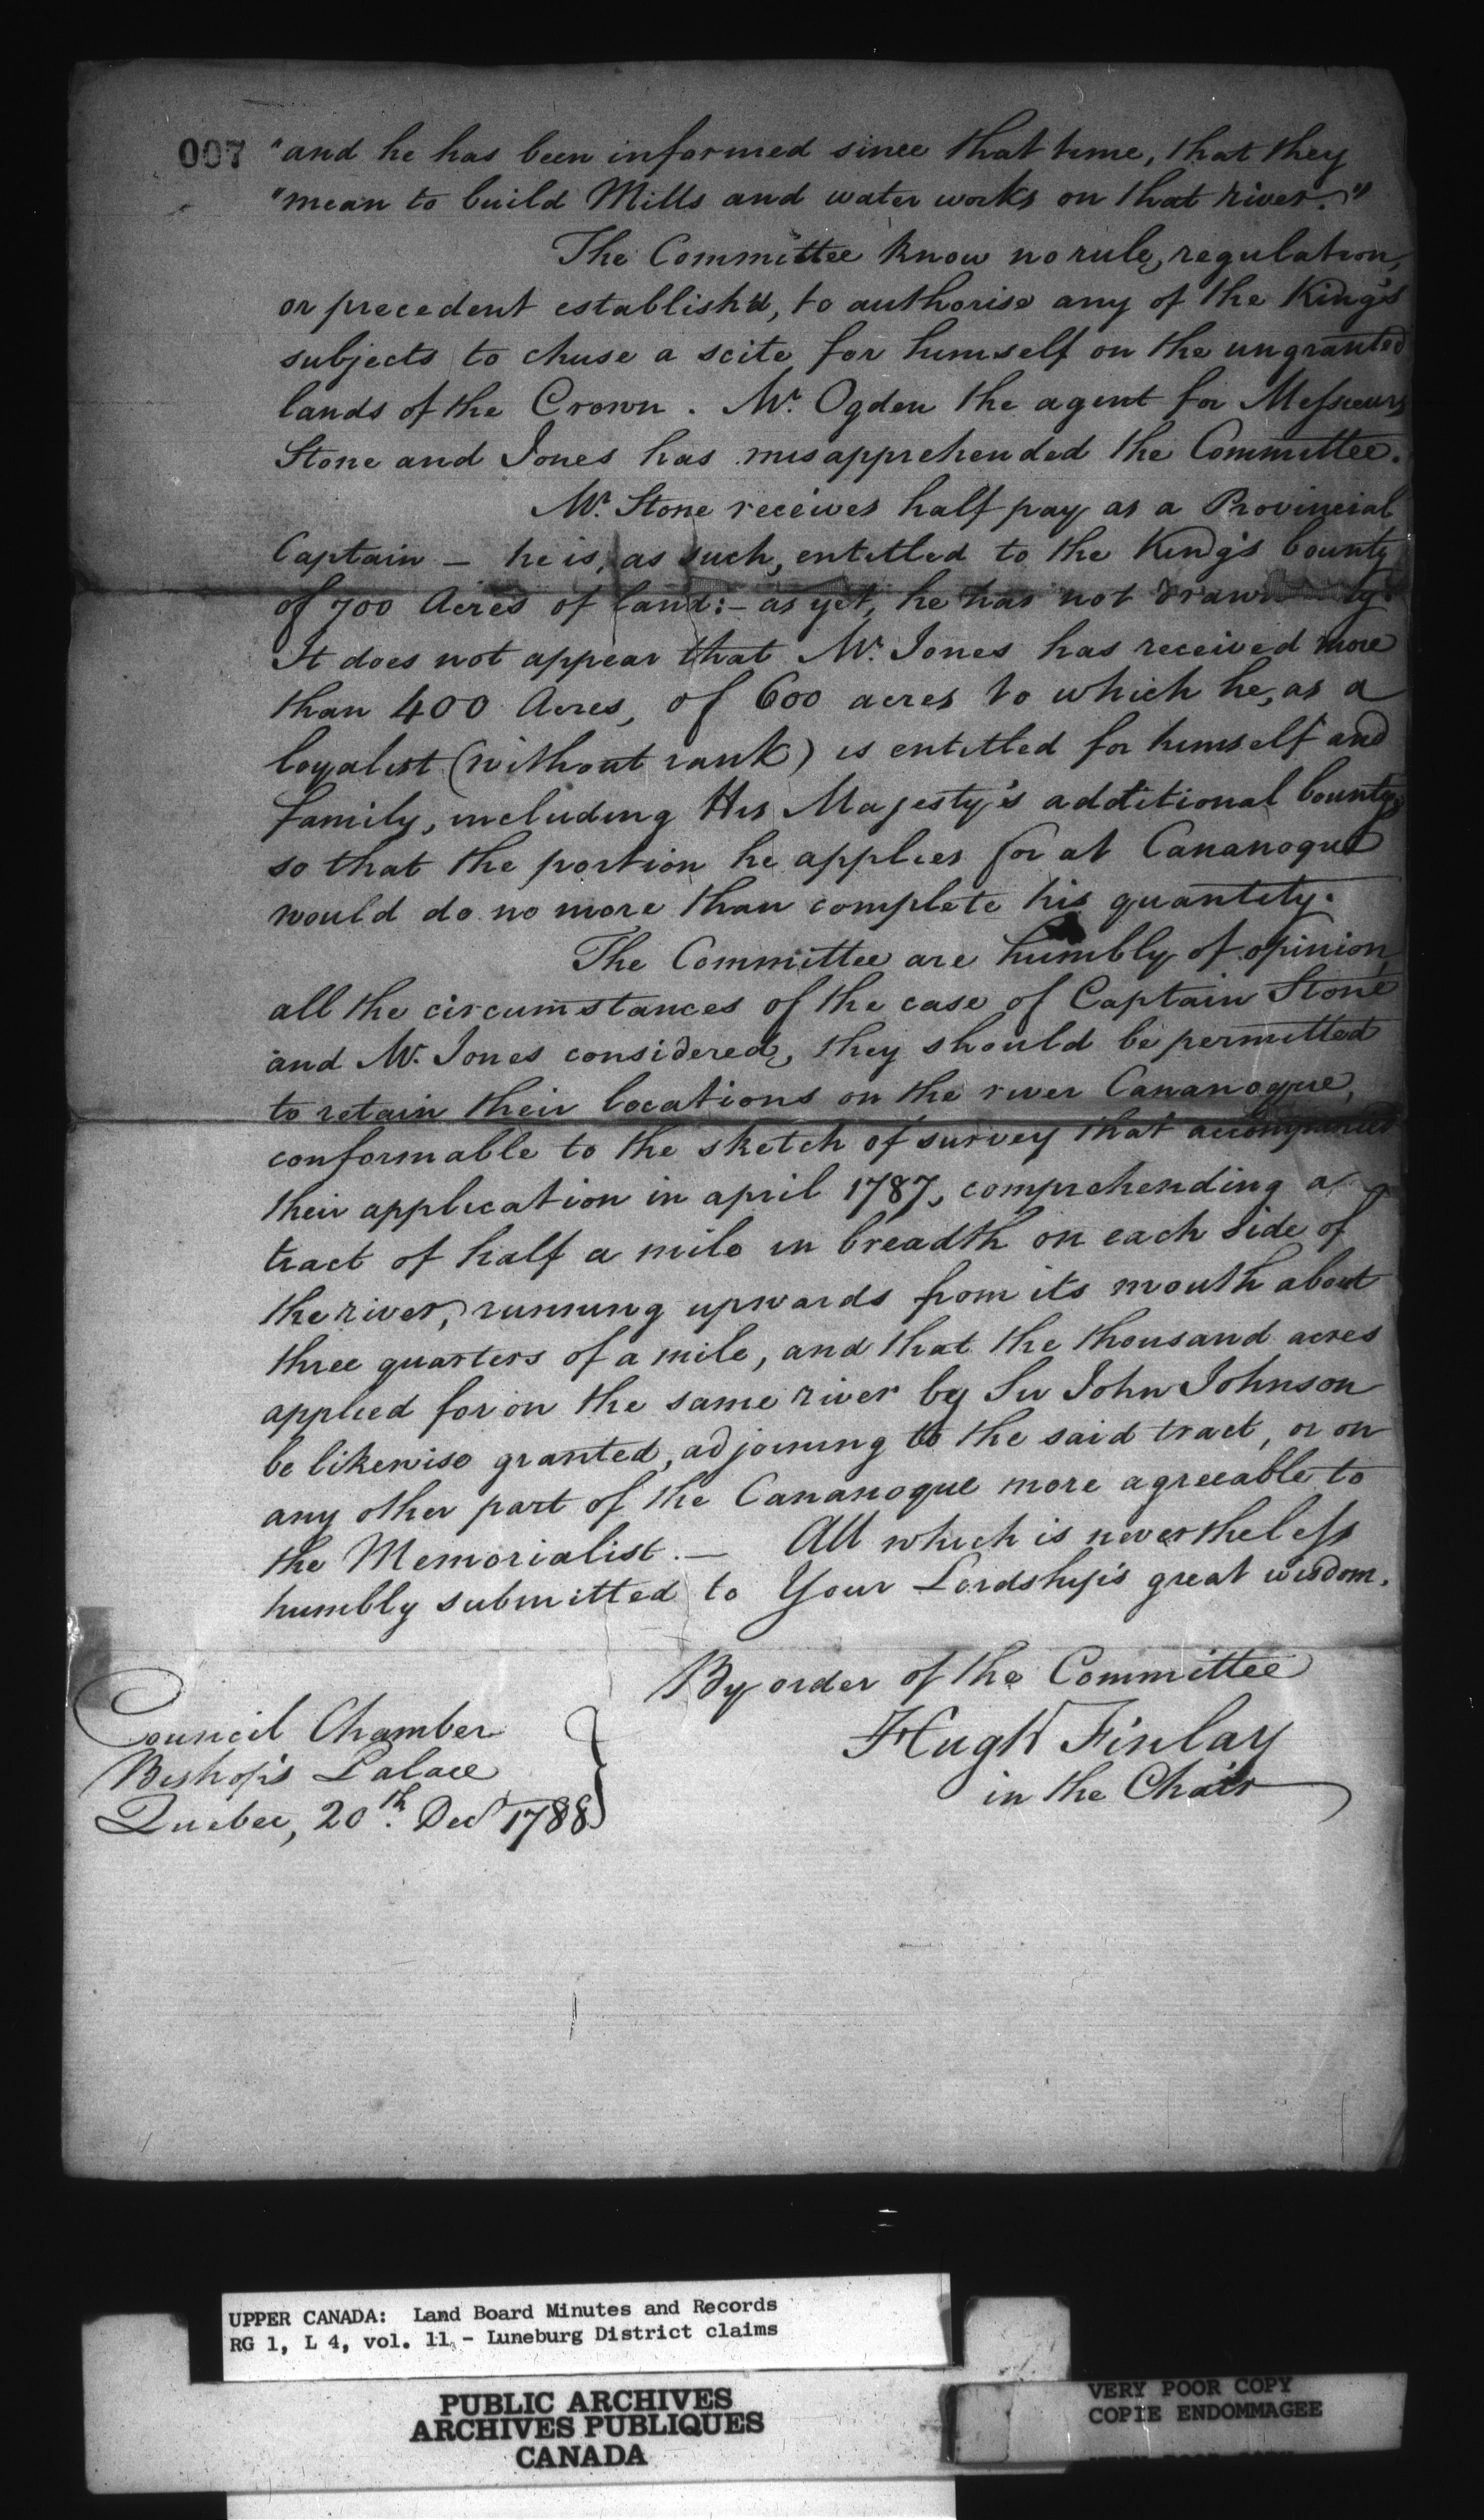 007 "and he has been informed since that time, that they
"mean to build Mills and water works on that river."
The Committee know no rule, regulation,
or precedent establish'd, to authorise any of the King's
subjects to chuse a scite for himself on the ungranted
lands of the Crown. Mr. Ogden the agent for Messieurs
Stone and Jones has misapprehended the Committee.
Mr. Stone receives half pay as a Provincial
Captain — he is, as such, entitled to the King's bounty
of 700 Acres of land:- as yet, he has not drawn
It does not appear that Mr. Jones has received more
than 400 Acres, of 600 acres to which he, as a
loyalist (without rank) is entitled for himself and
family, including His Majesty's additional bounty,
so that the portion he applies for at Cananoque
would do no more than complete his quantity.
The Committee are humbly of opinion,
all the circumstances of the case of Captain Stone
and Mr. Jones considered, they should be permitted
to retain their locations on the river Cananoque,
conformable to the sketch of survey that accompanied
their application in april 1787, comprehending a
tract of half a mile in breadth on each side of
the river, running upwards from its mouth about
three quarters of a mile, and that the thousand acres
applied for on the same river by Sir John Johnson
be likewise granted, adjoining to the said tract, or on
any other part of the Cananoque more agreeable to
the Memorialist. — All which is nevertheless
humbly submitted to Your Lordship's great wisdom.
By order of the Committee
Hugh Finlay
in the Chair
Council Chamber
Bishop's Palace
Quebec, 20th. Decr 1788
UPPER CANADA: Land Board Minutes and Records
RG 1, L 4, vol. 11, - Luneburg District claims
PUBLIC ARCHIVES
ARCHIVES PUBLIQUES
CANADA
VERY POOR COPY
COPIE ENDOMMAGEE